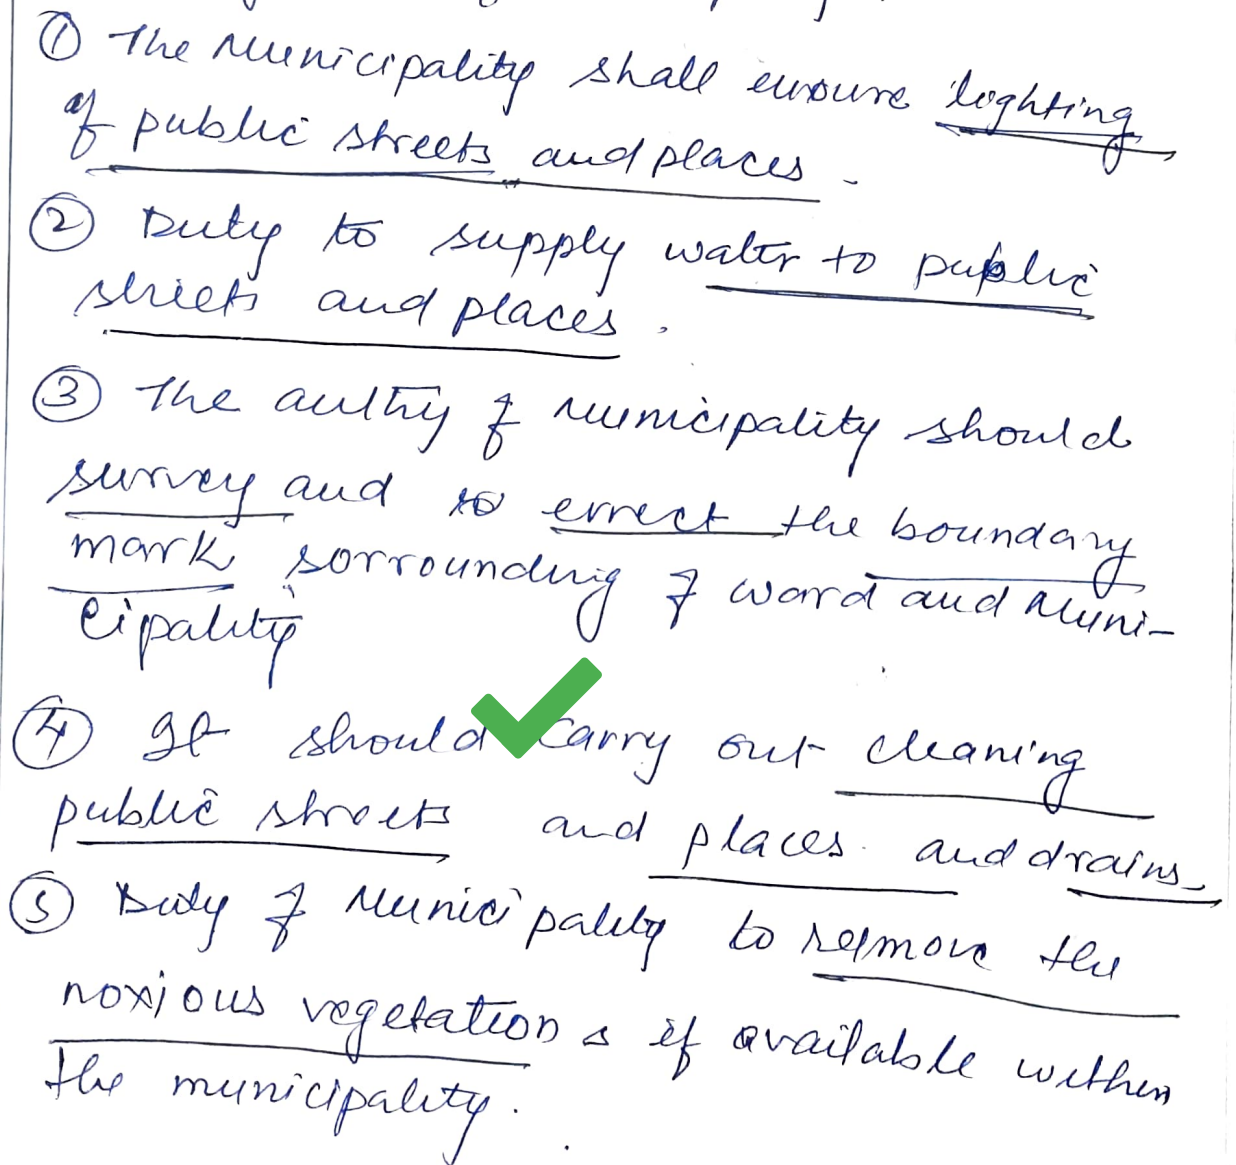 ① The Municipality shall ensure lighting
of public streets and places.
② Duty to supply water to public
streets and places.
③ The authty of municipality should
survey and to errect the boundary
mark sorrounding of ward and Muni-
cipality
④ It should carry out cleaning
public streets and places and drains
⑤ Duty of Municipality to remove the
noxious vegetation s if available within
the municipality.